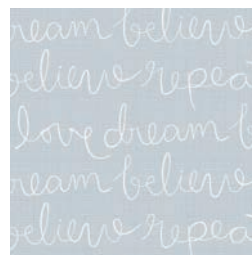 ream believe
believe repea
love dream b
ream believe
believe repea